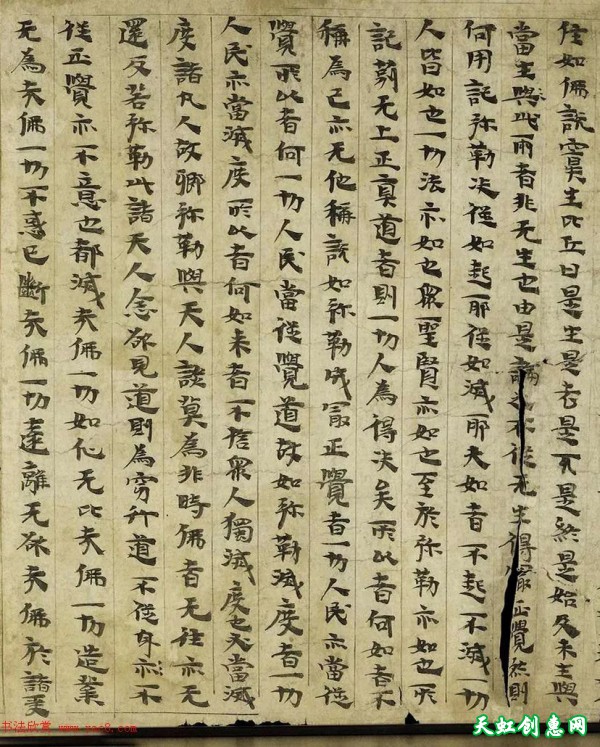 住如佛說實生比丘曰是生是老是死是終是始及未生與
當生與此兩者非无生也由是論之不從无生得最正覺然則
何用記弥勒决從如起耶從如滅耶夫如者不起不滅一切
人皆如也一切法亦如也眾聖賢亦如也至於弥勒亦如也所
記莂无上正真道者則一切人為得决矣所以者何如者不
稱為己亦无他稱說如弥勒成最正覺者一切人民亦當從
覺所以者何一切人民當從覺道故如弥勒滅度者一切
人民亦當滅度所以者何如来者不捨眾人獨滅度也必當滅
度諸凡人故卿弥勒與天人談莫為非時佛者无往亦无
還反若弥勒此諸天人念欲見道則為穷行道不從身亦不
從正覺亦不意也都滅夫佛一切如化无比夫佛一切造業
无為夫佛一切不惑已斷夫佛一切遠離无欲夫佛於諸受
书法欣赏
天虹创惠网